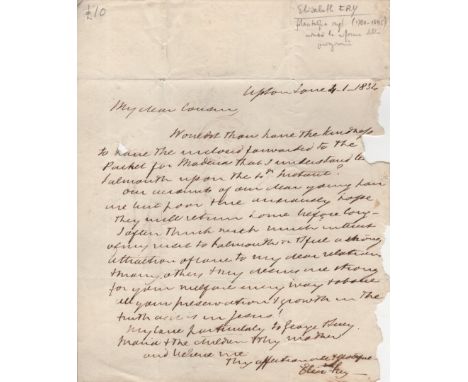 £10
Elizabeth FRY
Upton Lane 4-1-1834
My dear Cousin,
Wouldst thou have the kindness
to have the inclosed forwarded to the
Packet for Madeira that I understand
Falmouth upon the 10th Instant?
Our accounts of our dear young pair
are but poor & we anxiously hope
they will return home before long -
I often think with much interest
of my visit to Falmouth & feel a strong
attraction of love to my dear relations
& many others & my desires are strong
for your welfare every way & above
all your preservation & growth in the
truth as it is in Jesus!
My love particularly to George
Maria & the children & thy mother
and believe me
Thy affectionate
Eliz Fry